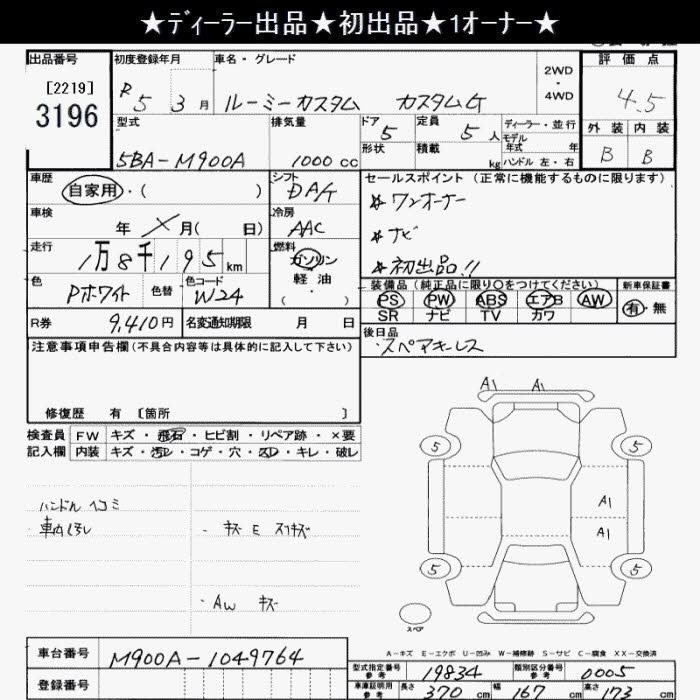 ★ディーラー出品★初出品★1オーナー★
出品番号 初度登録年月 車名・グレード 評価点
[2219]
3196
R 5 3 月 ルーミーカスタム カスタムG 2WD・4WD 4.5
型式 排気量 ドア 定員 ディーラー・並行 外装 内装
5 5 人 モデル年式 年
5BA-M900A 1000 cc 形状 積載 kg ハンドル 左・右 B B
車歴 シフト セールスポイント (正常に機能するものに限ります)
自家用・( ) DAt ☆ ワンオーナー
車検 冷房
年 月( 日) AAC ☆ ナビ
走行 燃料
1万8千195 km ガソリン・軽油・( ) ☆ 初出品!!
色 色替 色コード 装備品(純正品に限り○をつけてください) 新車保証書
Pホワイト W24 PS PW ABS エアB AW 有・無
SR ナビ TV カワ
R券 9,410円 名変通知期限 月 日 後日品
・スペアキーレス
注意事項申告欄(不具合内容等は具体的に記入して下さい)
修復歴 有 [箇所 ]
検査員 FW キズ・飛石・ヒビ割・リペア跡・×要
記入欄 内装 キズ・汚レ・コゲ・穴・スレ・キレ・破レ
A1 A1
5 5
ハンドル ヘコミ
車内よごレ ・キズ E スリキズ
A1
A1
5 5
・AW キズ
スペア
A-キズ E-エクボ U-凹み W-補修跡 S-サビ C-腐食 XX-交換済
車台番号 M900A-1049764
登録番号
型式指定番号 参考 19834 類別区分番号 参考 0005
車庫証明用 参考 長さ 370 cm 幅 167 cm 高さ 173 cm